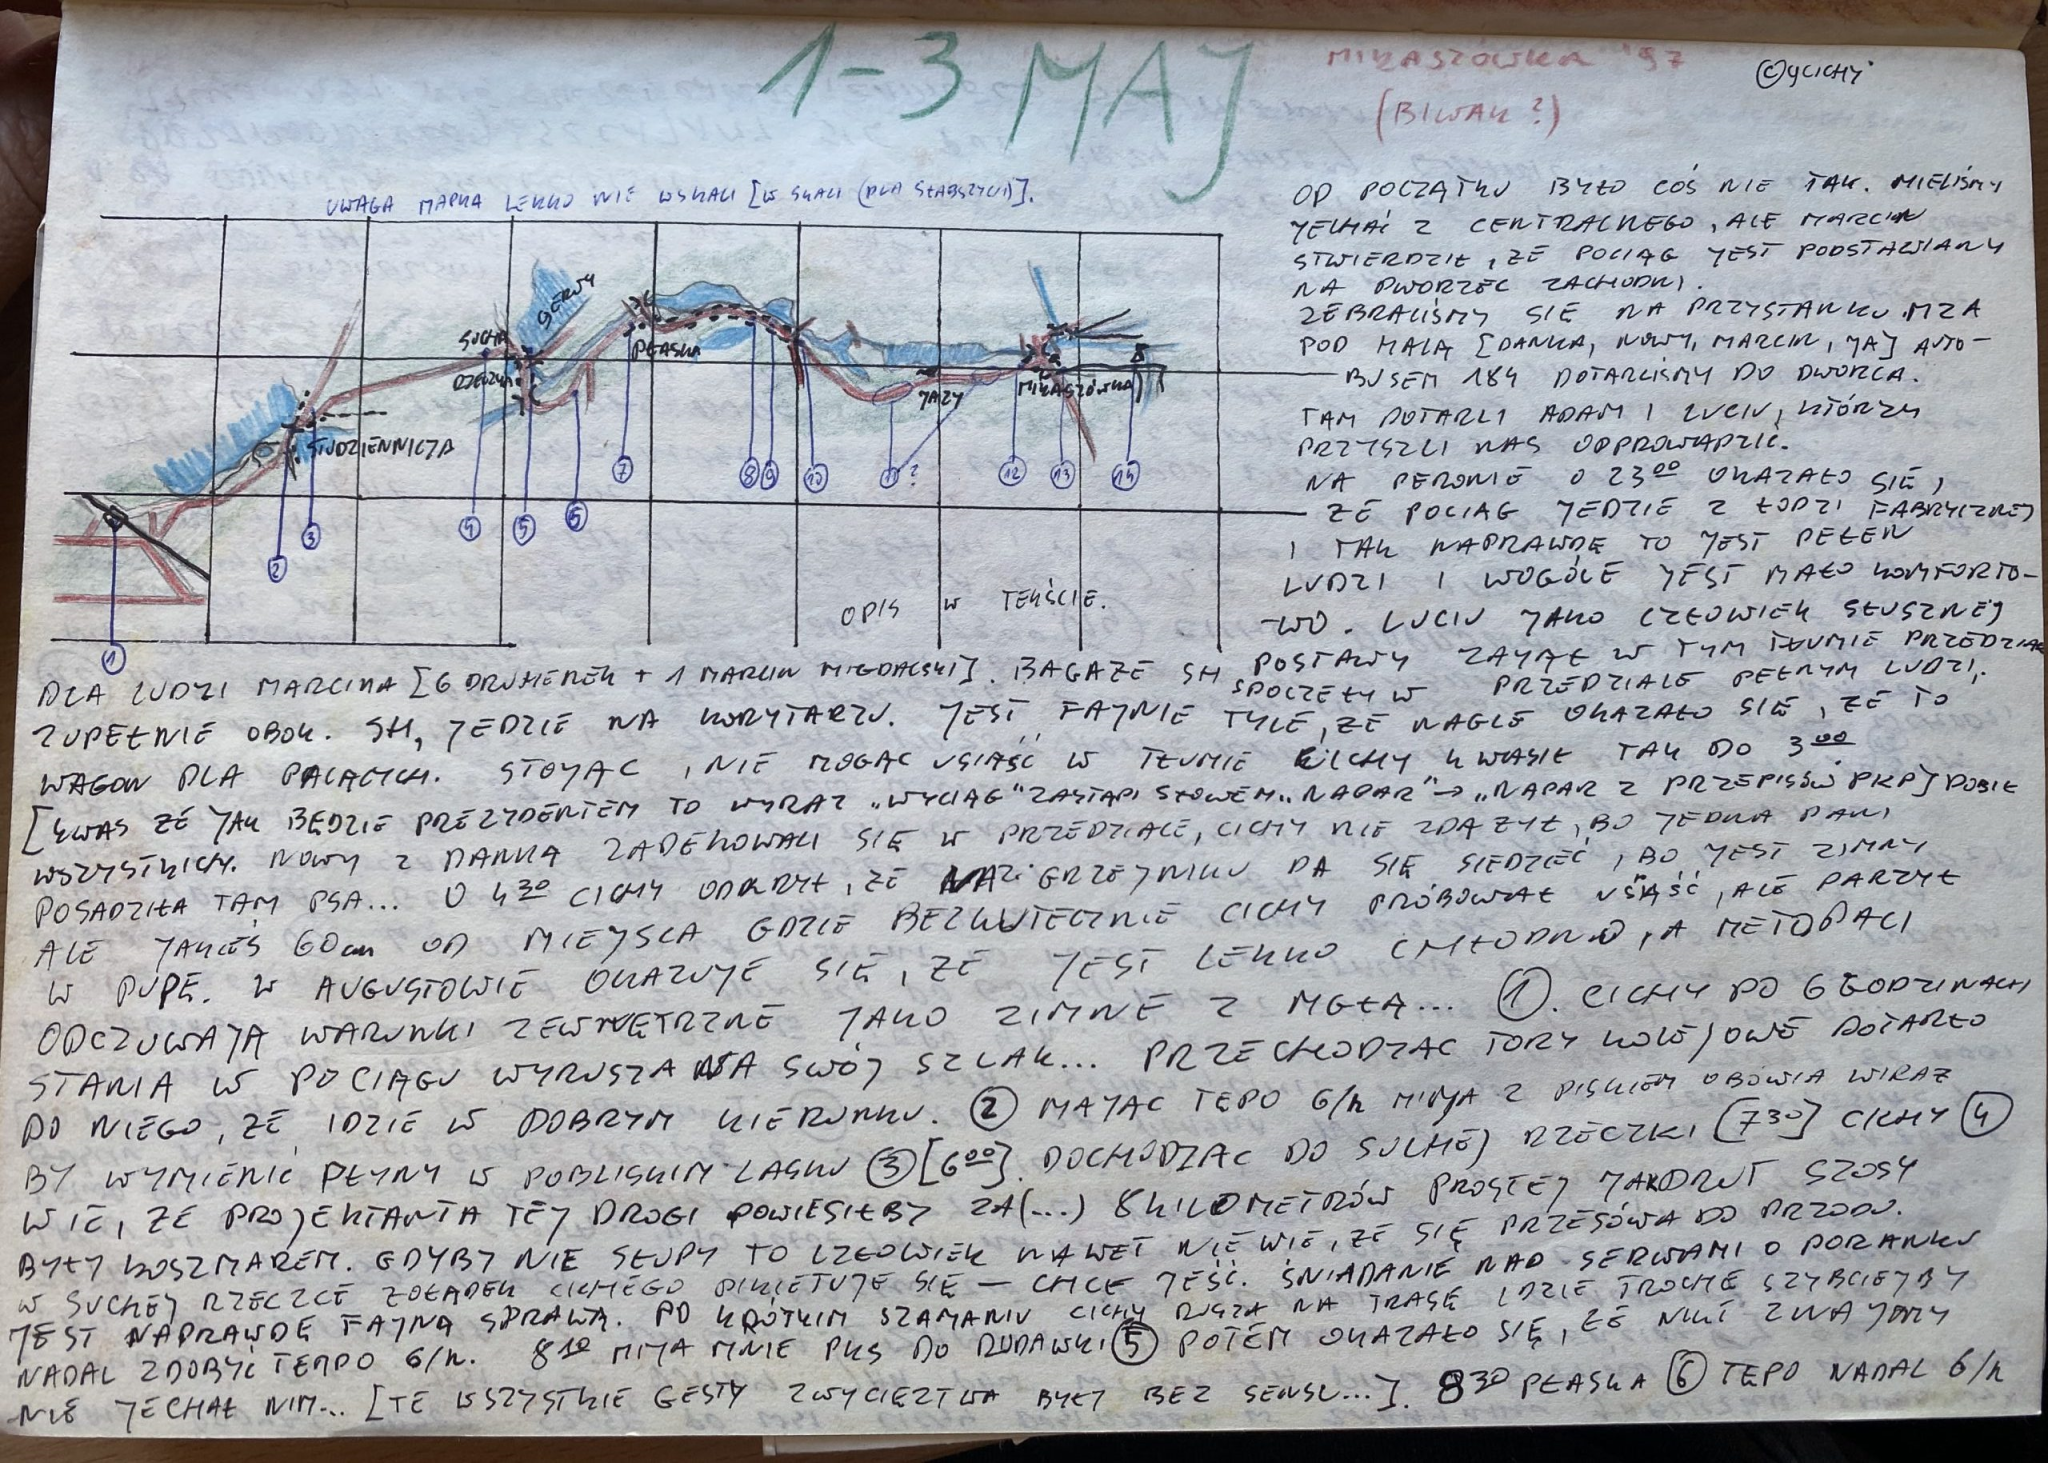 1-3 MAJ
MIKASZÓWKA '97
(BIWAK?)
©JCICHY
UWAGA MAPKA LEKKO NIE WSKALI [W SKALI (DLA SŁABSZYCH)].
SUCHA
RZECZKA
SERWY
PŁASKA
STUDZIENNICZA
JAZY
MIKASZÓWKA
1
2
3
4
5
5
7
8
9
10
11 ?
12
13
14
OPIS W TEKŚCIE.
OD POCZĄTKU BYŁO COŚ NIE TAK. MIELIŚMY
JECHAĆ Z CENTRALNEGO, ALE MARCIN
STWIERDZIŁ, ŻE POCIĄG JEST PODSTAWIANY
NA DWORZEC ZACHODNI.
ZEBRALIŚMY SIĘ NA PRZYSTANKU MZA
POD HALĄ [DANKA, NOWY, MARCIN, JA] AUTO-
BUSEM 184 DOTARLIŚMY DO DWORCA.
TAM DOTARLI ADAM I LUCIU, KTÓRZY
PRZYSZLI NAS ODPROWADZIĆ.
NA PERONIE O 23⁰⁰ OKAZAŁO SIĘ,
ŻE POCIĄG JEDZIE Z ŁODZI FABRYCZNEJ
I TAK NAPRAWDĘ TO JEST PEŁEN
LUDZI I WOGÓLE JEST MAŁO KOMFORTO-
-WO. LUCIU JAKO CZŁOWIEK SŁUSZNEJ
POSTAWY ZAJĄŁ W TYM TŁUMIE PRZEDZIAŁ
DLA LUDZI MARCINA [6 DRUHENEK + 1 MARCIN MIGDALSKI]. BAGAŻE SH SPOCZĘŁY W PRZEDZIALE PEŁNYM LUDZI,
ZUPEŁNIE OBOK. SH, JEDZIE NA KORYTARZU. JEST FAJNIE TYLE, ŻE NAGLE OKAZAŁO SIĘ, ŻE TO
WAGON DLA PALĄCYCH. STOJĄC, NIE MOGĄC USIĄŚĆ W TŁUMIE CICHY KWASIŁ TAK DO 3⁰⁰
[KWAS ŻE JAK BĘDZIE PREZYDENTEM TO WYRAZ „WYCIĄG" ZASTĄPI SŁOWEM „NAPAR" → „NAPAR Z PRZEPISÓW PKP] DOBIŁ
WSZYSTKICH. NOWY Z DANKĄ ZADEKOWALI SIĘ W PRZEDZIALE, CICHY NIE ZDĄŻYŁ, BO JEDNA PANI
POSADZIŁA TAM PSA... O 4³⁰ CICHY ODKRYŁ, ŻE NA GRZEJNIKU DA SIĘ SIEDZIEĆ, BO JEST ZIMNY
ALE JAKIEŚ 60cm OD MIEJSCA GDZIE BEZKUTECZNIE CICHY PRÓBOWAŁ USIĄŚĆ, ALE PARZYŁ
W PUPĘ. W AUGUSTOWIE OKAZUJE SIĘ, ŻE JEST LEKKO CHŁODNO, A METOPACI
ODCZUWAJĄ WARUNKI ZEWNĘTRZNE JAKO ZIMNE Z MGŁĄ... 1. CICHY PO 6 GODZINACH
STANIA W POCIĄGU WYRUSZA NA SWÓJ SZLAK... PRZECHODZĄC TORY KOLEJOWE DOTARŁO
DO NIEGO, ŻE IDZIE W DOBRYM KIERUNKU. 2 MAJĄC TĘPO 6/h MIJA Z PISKIEM OBÓWIA WIRAŻ
BY WYMIENIĆ PŁYNY W POBLISKIM LASKU 3 [6⁰⁰]. DOCHODZĄC DO SUCHEJ RZECZKI [7³⁰] CICHY 4
WIE, ŻE PROJEKTANTA TEJ DROGI POWIESIŁBY ZA (...) 8 KILOMETRÓW PROSTEJ JAK DRUT SZOSY
BYŁY KOSZMAREM. GDYBY NIE SŁUPY TO CZŁOWIEK NAWET NIE WIE, ŻE SIĘ PRZESÓWA DO PRZODU.
W SUCHEJ RZECZCE ŻOŁĄDEK CICHEGO PIKIETUJE SIĘ — CHCE JEŚĆ. ŚNIADANIE NAD SERWAMI O PORANKU
JEST NAPRAWDĘ FAJNĄ SPRAWĄ. PO KRÓTKIM SZAMANIU CICHY RUSZA NA TRASĘ IDZIE TROCHĘ SZYBCIEJ BY
NADAL ZDOBYĆ TEMPO 6/h. 8¹⁰ MIJA MNIE PKS DO RUDAWKI 5 POTEM OKAZAŁO SIĘ, ŻE NIKT ZNAJOMY
NIE JECHAŁ NIM... [TE WSZYSTKIE GESTY ZWYCIĘZTWA BYŁY BEZ SENSU...]. 8³⁰ PŁASKA 6 TĘPO NADAL 6/h